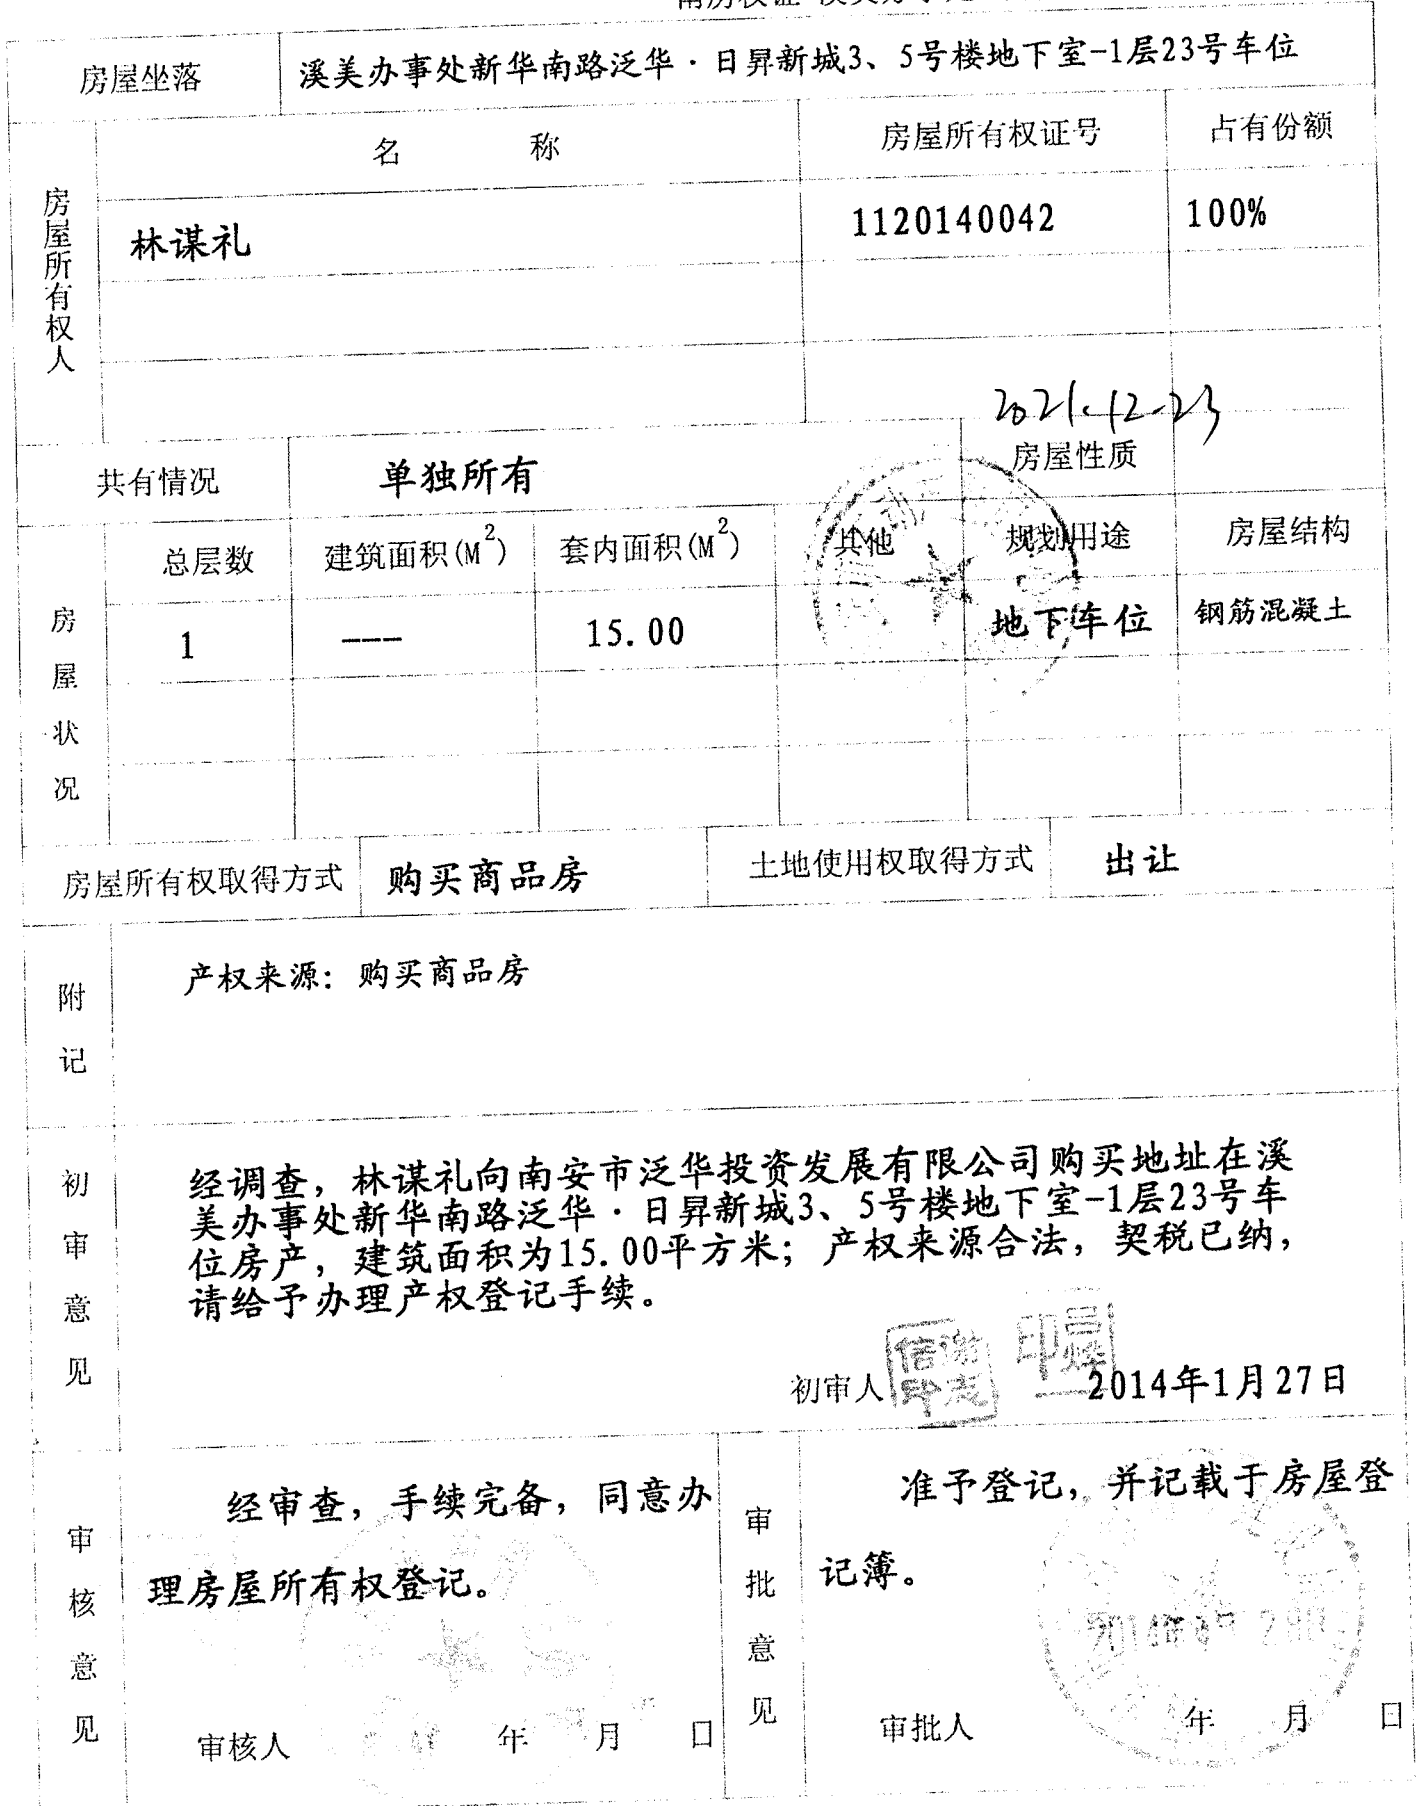 房屋坐落 溪美办事处新华南路泛华·日昇新城3、5号楼地下室-1层23号车位
房屋所有权人 名 称 房屋所有权证号 占有份额
林谋礼 1120140042 100%
2021.12.23
共有情况 单独所有 房屋性质
房屋状况 总层数 建筑面积(M²) 套内面积(M²) 其他 规划用途 房屋结构
1 --- 15.00 地下车位 钢筋混凝土
房屋所有权取得方式 购买商品房 土地使用权取得方式 出让
附记 产权来源：购买商品房
初审意见
经调查，林谋礼向南安市泛华投资发展有限公司购买地址在溪
美办事处新华南路泛华·日昇新城3、5号楼地下室-1层23号车
位房产，建筑面积为15.00平方米；产权来源合法，契税已纳，
请给予办理产权登记手续。
初审人 2014年1月27日
审核意见
经审查，手续完备，同意办
理房屋所有权登记。
审核人 年 月 日
审批意见
准予登记，并记载于房屋登
记簿。
审批人 年 月 日